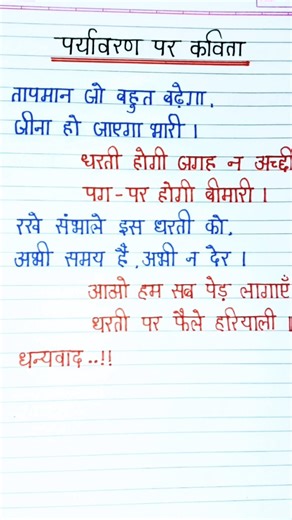 पर्यावरण पर कविता
तापमान जो बहुत बढ़ेगा,
जीना हो जाएगा भारी ।
धरती होगी जगह न अच्छी
पग-पर होगी बीमारी ।
रखे संभाले इस धरती को,
अभी समय हैं, अभी न देर ।
आओ हम सब पेड़ लागाएँ
धरती पर फैले हरियाली ।
धन्यवाद..!!